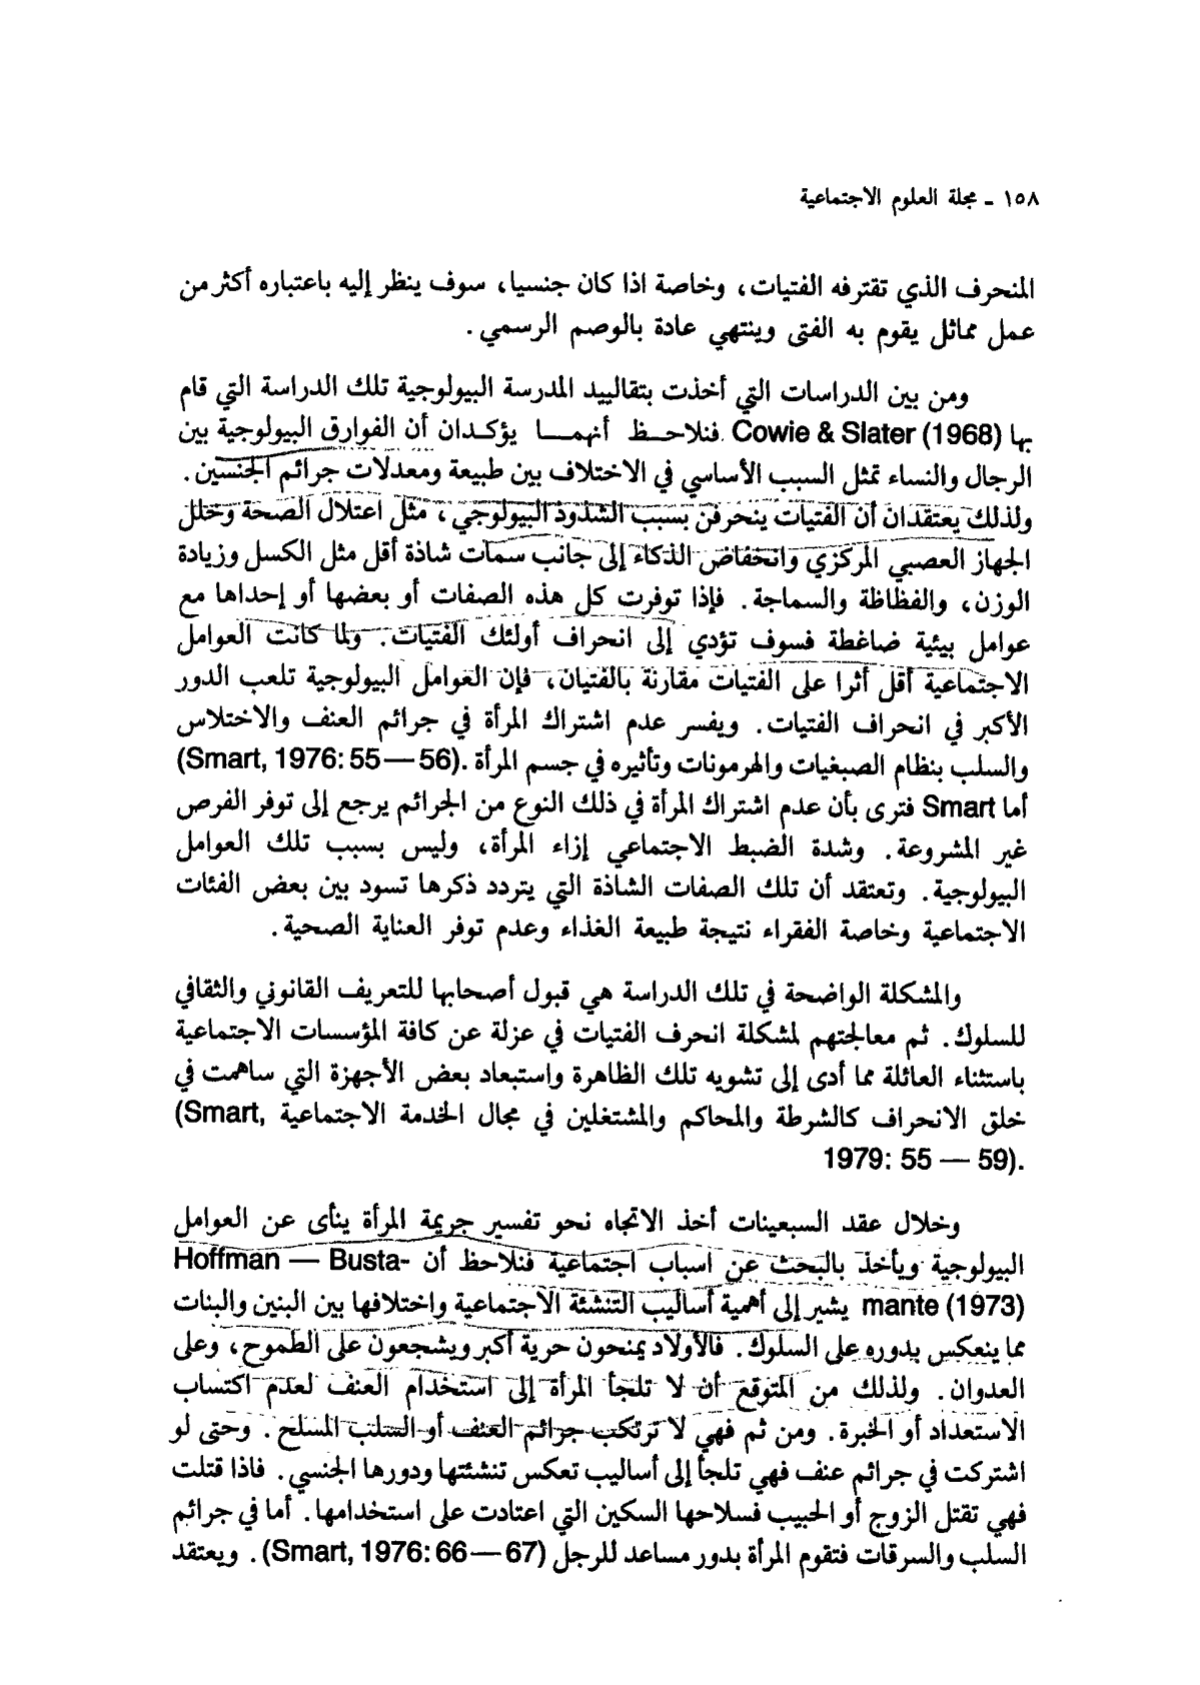 ١٥٨ ـ مجلة العلوم الاجتماعية
المنحرف الذي تقترفه الفتيات، وخاصة اذا كان جنسيا، سوف ينظر إليه باعتباره أكثر من
عمل مماثل يقوم به الفتى وينتهي عادة بالوصم الرسمي.
ومن بين الدراسات التي أخذت بتقاليد المدرسة البيولوجية تلك الدراسة التي قام
بها Cowie & Slater (1968) فنلاحظ أنهما يؤكدان أن الفوارق البيولوجية بين
الرجال والنساء تمثل السبب الأساسي في الاختلاف بين طبيعة ومعدلات جرائم الجنسين.
ولذلك يعتقدان أن الفتيات ينحرفن بسبب الشذوذ البيولوجي، مثل اعتلال الصحة وخلل
الجهاز العصبي المركزي وانخفاض الذكاء إلى جانب سمات شاذة أقل مثل الكسل وزيادة
الوزن، والفظاظة والسماجة. فإذا توفرت كل هذه الصفات أو بعضها أو إحداها مع
عوامل بيئية ضاغطة فسوف تؤدي إلى انحراف أولئك الفتيات. ولما كانت العوامل
الاجتماعية أقل أثرا على الفتيات مقارنة بالفتيان، فإن العوامل البيولوجية تلعب الدور
الأكبر في انحراف الفتيات. ويفسر عدم اشتراك المرأة في جرائم العنف والاختلاس
والسلب بنظام الصبغيات والهرمونات وتأثيره في جسم المرأة .(Smart, 1976: 55—56)
أما Smart فترى بأن عدم اشتراك المرأة في ذلك النوع من الجرائم يرجع إلى توفر الفرص
غير المشروعة. وشدة الضبط الاجتماعي إزاء المرأة، وليس بسبب تلك العوامل
البيولوجية. وتعتقد أن تلك الصفات الشاذة التي يتردد ذكرها تسود بين بعض الفئات
الاجتماعية وخاصة الفقراء نتيجة طبيعة الغذاء وعدم توفر العناية الصحية.
والمشكلة الواضحة في تلك الدراسة هي قبول أصحابها للتعريف القانوني والثقافي
للسلوك. ثم معالجتهم لمشكلة انحرف الفتيات في عزلة عن كافة المؤسسات الاجتماعية
باستثناء العائلة مما أدى إلى تشويه تلك الظاهرة واستبعاد بعض الأجهزة التي ساهمت في
خلق الانحراف كالشرطة والمحاكم والمشتغلين في مجال الخدمة الاجتماعية (Smart,
1979: 55 — 59).
وخلال عقد السبعينات أخذ الاتجاه نحو تفسير جريمة المرأة ينأى عن العوامل
البيولوجية ويأخذ بالبحث عن اسباب اجتماعية فنلاحظ أن Hoffman — Busta-
mante (1973) يشير إلى أهمية أساليب التنشئة الاجتماعية واختلافها بين البنين والبنات
مما ينعكس بدوره على السلوك. فالأولاد يمنحون حرية أكبر ويشجعون على الطموح، وعلى
العدوان. ولذلك من المتوقع أن لا تلجأ المرأة إلى استخدام العنف لعدم اكتساب
الاستعداد أو الخبرة. ومن ثم فهي لا ترتكب جرائم العنف أو السلب المسلح. وحتى لو
اشتركت في جرائم عنف فهي تلجأ إلى أساليب تعكس تنشئتها ودورها الجنسي. فاذا قتلت
فهي تقتل الزوج أو الحبيب فسلاحها السكين التي اعتادت على استخدامها. أما في جرائم
السلب والسرقات فتقوم المرأة بدور مساعد للرجل (Smart, 1976: 66—67). ويعتقد